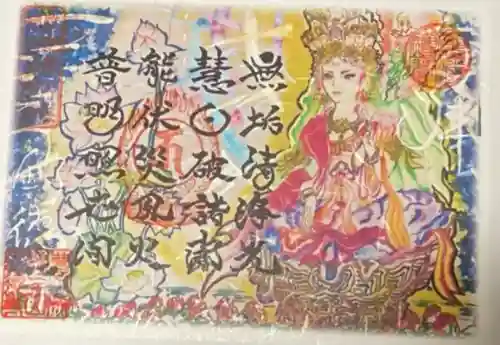 無垢清净光
慧日破諸闇
能伏災風火
普明照世间